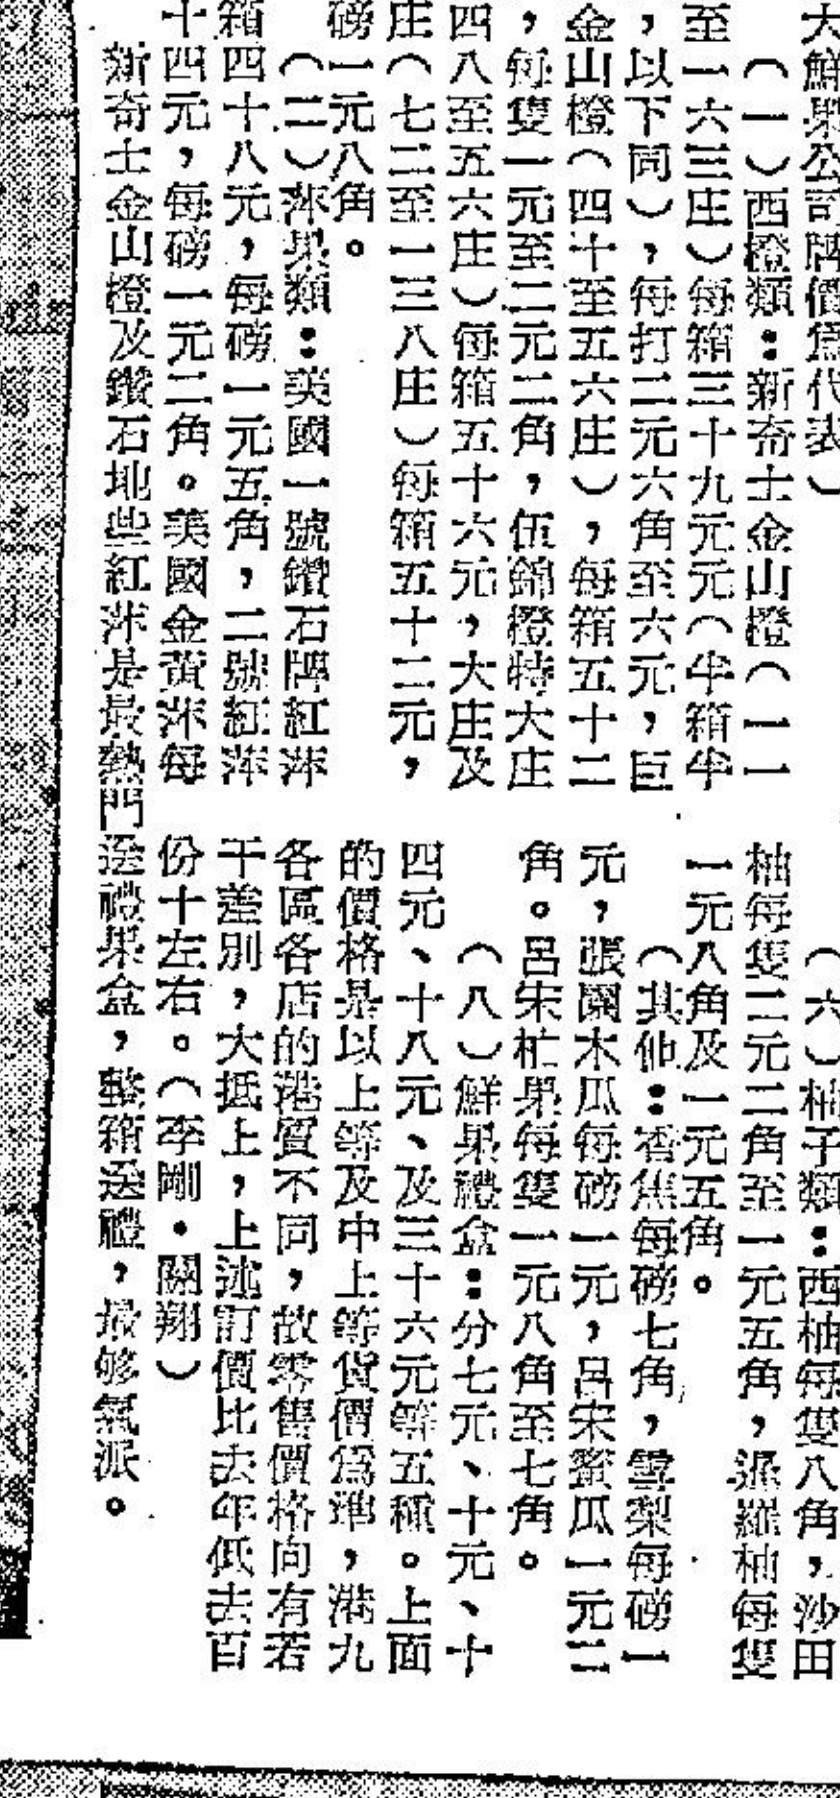 大鮮果公司牌價爲代表）
（一）西橙類：新奇士金山橙（一一
至一六三庄）每箱三十九元元（半箱半
，以下同），每打二元六角至六元，巨
金山橙（四十至五六庄），每箱五十二
，每隻一元至二元二角，伍錦橙特大庄
四八至五六庄）每箱五十六元，大庄及
庄（七二至一三八庄）每箱五十二元，
磅一元八角。
（二）苹果類：美國一號鑽石牌紅苹
箱四十八元，每磅一元五角，二號紅苹
十四元，每磅一元二角。美國金黃苹每
（六）柚子類：西柚每隻八角，沙田
柚每隻二元二角至一元五角，暹羅柚每隻
一元八角及一元五角。
（其他：香焦每磅七角，雪梨每磅一
元，張園木瓜每磅一元，呂宋蜜瓜一元二
角。呂宋杧果每隻一元八角至七角。
（八）鮮果禮盒：分七元、十元、十
四元、十八元、及三十六元等五種。上面
的價格是以上等及中上等貨價爲準，港九
各區各店的港質不同，故零售價格向有若
干差別，大抵上，上述訂價比去年低去百
份十左右。（李剛・關翔）
新奇士金山橙及鑽石地些紅苹是最熱門送禮果盒，整箱送禮，最够氣派。